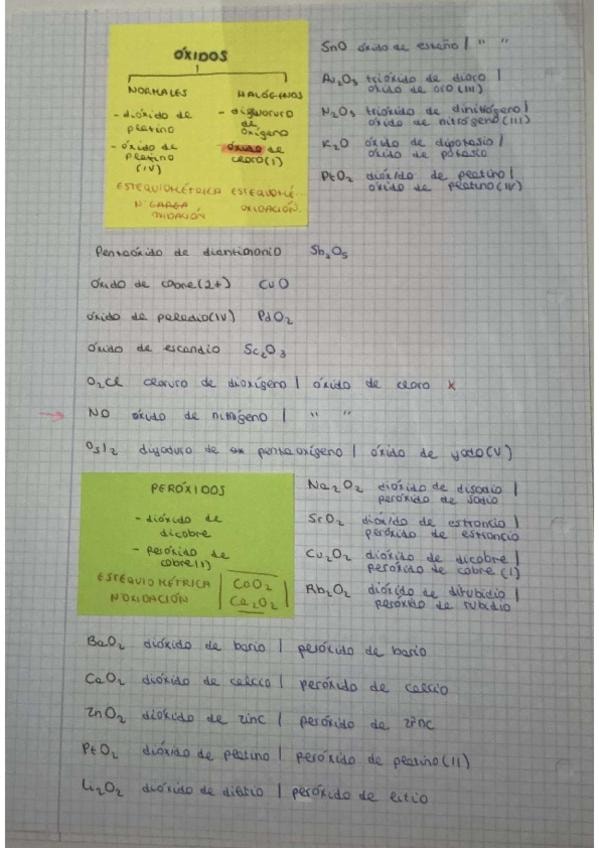 ÓXIDOS
NORMALES
- dióxido de
platino
- óxido de
platino
(IV)
ESTEQUIOMÉTRICA
Nº CARGA
OXIDACIÓN
HALÓGENOS
- difluoruro
de
oxígeno
óxido de
cloro(I)
ESTEQUIOMÉ...
OXIDACIÓN.
SnO óxido de estaño | " "
Au₂O₃ trióxido de dioro |
óxido de oro (III)
N₂O₃ trióxido de dinitrógeno |
óxido de nitrógeno (III)
K₂O óxido de dipotasio |
óxido de potasio
PtO₂ dióxido de platino |
óxido de platino (IV)
Pentaóxido de diantimonio Sb₂O₅
óxido de cobre (2+) CuO
óxido de paladio (IV) PdO₂
óxido de escandio Sc₂O₃
O₂Cl cloruro de dioxígeno | óxido de cloro x
NO óxido de nitrógeno | " "
O₅I₂ diyoduro de pentaoxígeno | óxido de yodo (V)
PERÓXIDOS
- dióxido de
dicobre
- peróxido de
cobre (I)
ESTEQUIOMÉTRICA
N.OXIDACIÓN
CoO₂
Ca₂O₂
Na₂O₂ dióxido de disodio |
peróxido de sodio
SrO₂ dióxido de estroncio |
peróxido de estroncio
Cu₂O₂ dióxido de dicobre |
peróxido de cobre (I)
Rb₂O₂ dióxido de dirubidio |
peróxido de rubidio
BaO₂ dióxido de bario | peróxido de bario
CaO₂ dióxido de calcio | peróxido de calcio
ZnO₂ dióxido de zinc | peróxido de zinc
PtO₂ dióxido de platino | peróxido de platino (II)
Li₂O₂ dióxido de dilitio | peróxido de litio